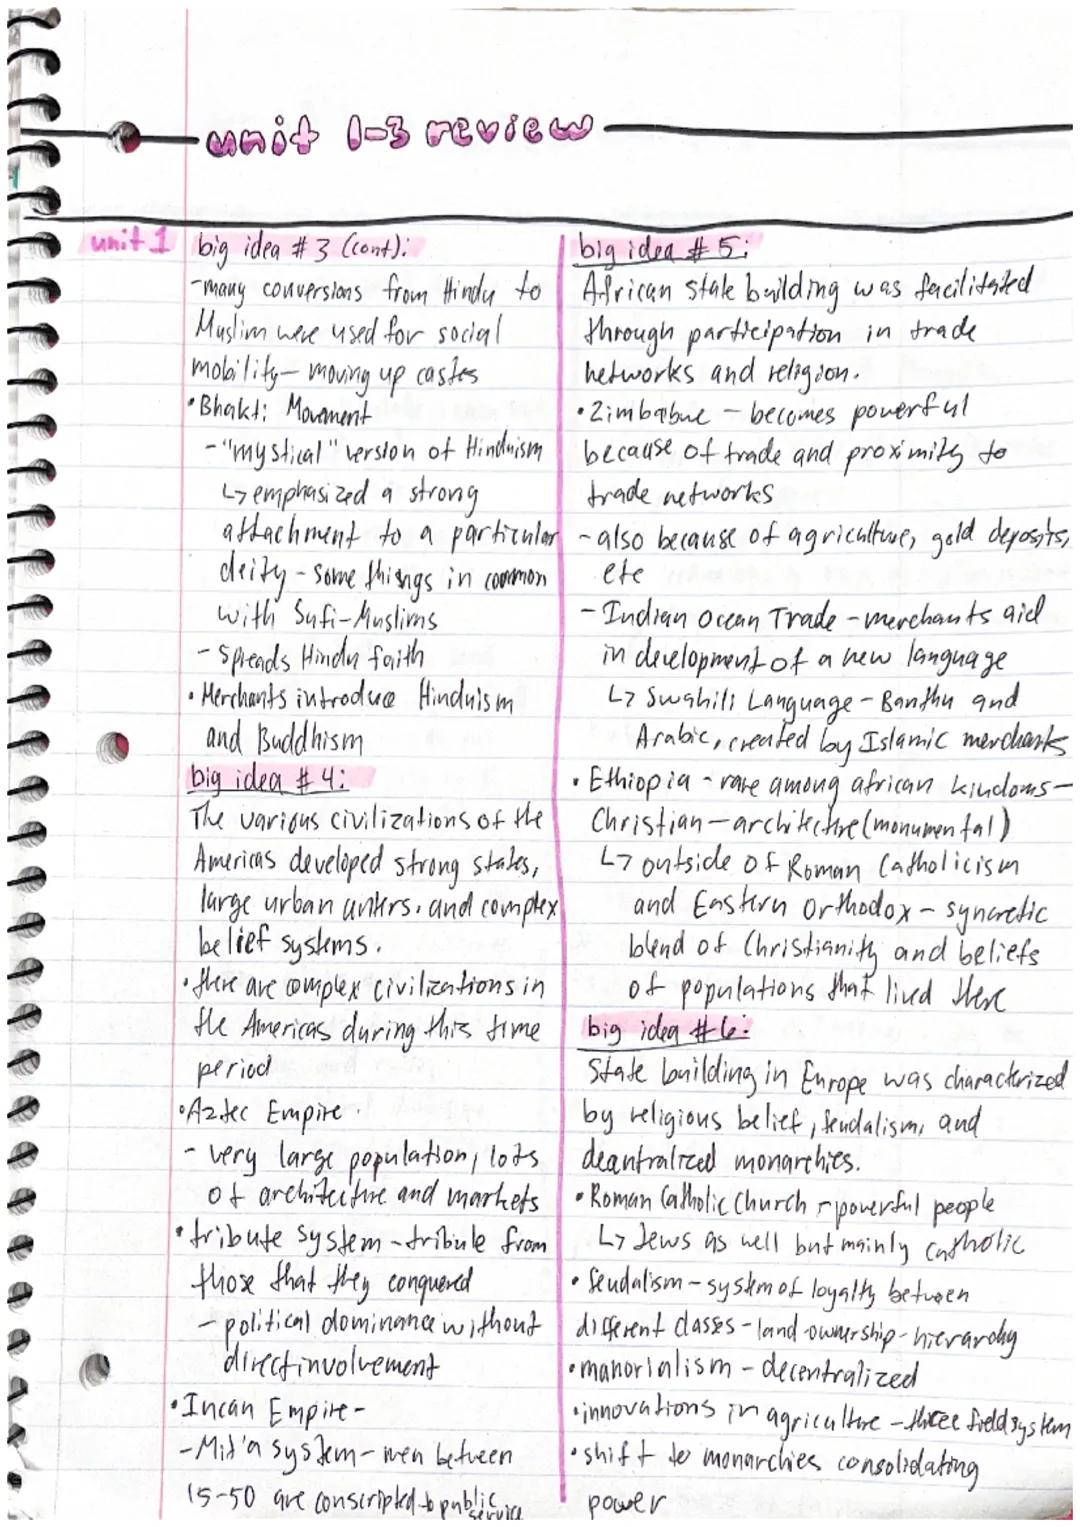 unit 1-3 review
unit 1
big idea #3 (cont):
-many conversions from Hindu to
Muslim were used for social
mobility - moving up castes
• Bhakti Movement
- "mystical" version of Hinduism
↳ emphasized a strong
attachment to a particular
deity - some things in common
with Sufi-Muslims
- spreads Hindu faith
• Merchants introduce Hinduism
and Buddhism
big idea #4:
The various civilizations of the
Americas developed strong states,
large urban centers, and complex
belief systems.
• there are complex civilizations in
the Americas during this time
period
• Aztec Empire
- very large population, lots
of architecture and markets
• tribute system - tribute from
those that they conquered
- political dominance without
direct involvement
• Incan Empire -
- Mit'a system - men between
15-50 are conscripted to public service
big idea #5:
African state building was facilitated
through participation in trade
networks and religion.
• Zimbabwe - becomes powerful
because of trade and proximity to
trade networks
- also because of agriculture, gold deposits,
etc
- Indian Ocean Trade - merchants aid
in development of a new language
↳ Swahili Language - Banthu and
Arabic, created by Islamic merchants
• Ethiopia - rare among african kindoms -
Christian - architectre (monumental)
↳ outside of Roman Catholicism
and Eastern Orthodox - syncretic
blend of Christianity and beliefs
of populations that lived there
big idea #6:
State building in Europe was characterized
by religious belief, feudalism, and
decentralized monarchies.
• Roman Catholic Church - powerful people
↳ Jews as well but mainly catholic
• feudalism - system of loyalty between
different classes - land-ownership - hierarchy
• manorialism - decentralized
• innovations in agriculture - three field system
• shift to monarchies consolidating
power